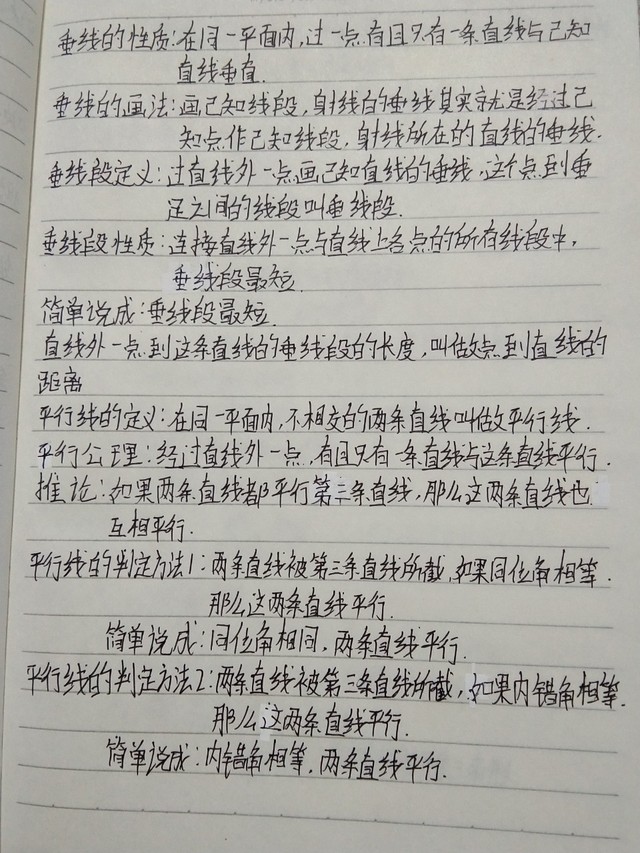 垂线的性质:在同一平面内,过一点有且只有一条直线与已知
直线垂直.
垂线的画法:画已知线段,射线的垂线其实就是经过已
知点作已知线段,射线所在的直线的垂线.
垂线段定义:过直线外一点画已知直线的垂线,这个点到垂
足之间的线段叫垂线段.
垂线段性质:连接直线外一点与直线上各点的所有线段中,
垂线段最短.
简单说成:垂线段最短.
直线外一点到这条直线的垂线段的长度,叫做点到直线的
距离
平行线的定义:在同一平面内,不相交的两条直线叫做平行线.
平行公理:经过直线外一点,有且只有一条直线与这条直线平行.
推论:如果两条直线都平行第三条直线,那么这两条直线也
互相平行.
平行线的判定方法1:两条直线被第三条直线所截,如果同位角相等.
那么这两条直线平行.
简单说成:同位角相同,两条直线平行.
平行线的判定方法2:两条直线被第三条直线所截,如果内错角相等.
那么这两条直线平行.
简单说成:内错角相等,两条直线平行.